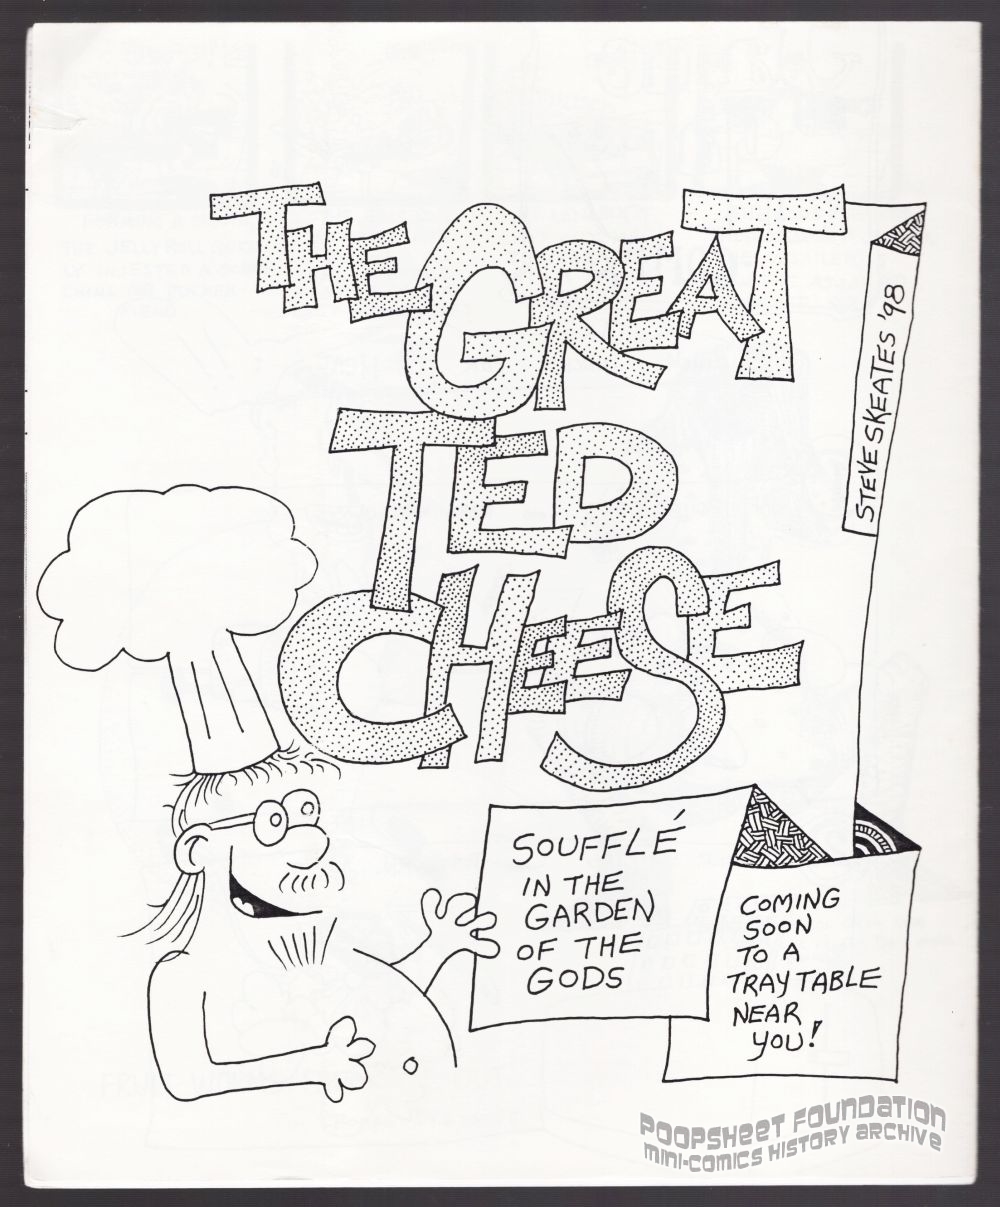 THE GREAT
TED
CHEESE
STEVE SKEATES '98
SOUFFLÉ
IN THE
GARDEN
OF THE
GODS
COMING
SOON
TO A
TRAY TABLE
NEAR
YOU!
POOPSHEET FOUNDATION
MINI-COMICS HISTORY ARCHIVE